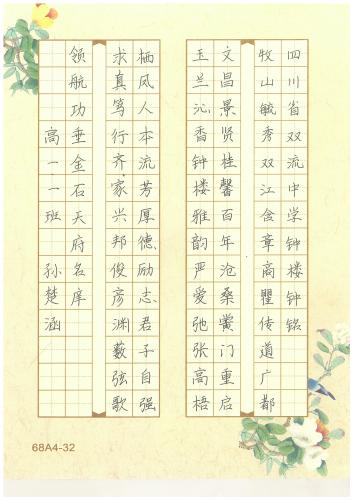 四川省双流中学钟楼钟铭
牧山毓秀双江会章高瞿传道广都
文昌景贤桂馨百年沧桑黉门重启
玉兰沁香钟楼雅韵严爱弛张高梧
栖风人本流芳厚德励志君子自强
求真笃行齐家兴邦俊彦渊薮弦歌
领航功垂金石天府名庠
高一一班 孙楚涵
68A4-32